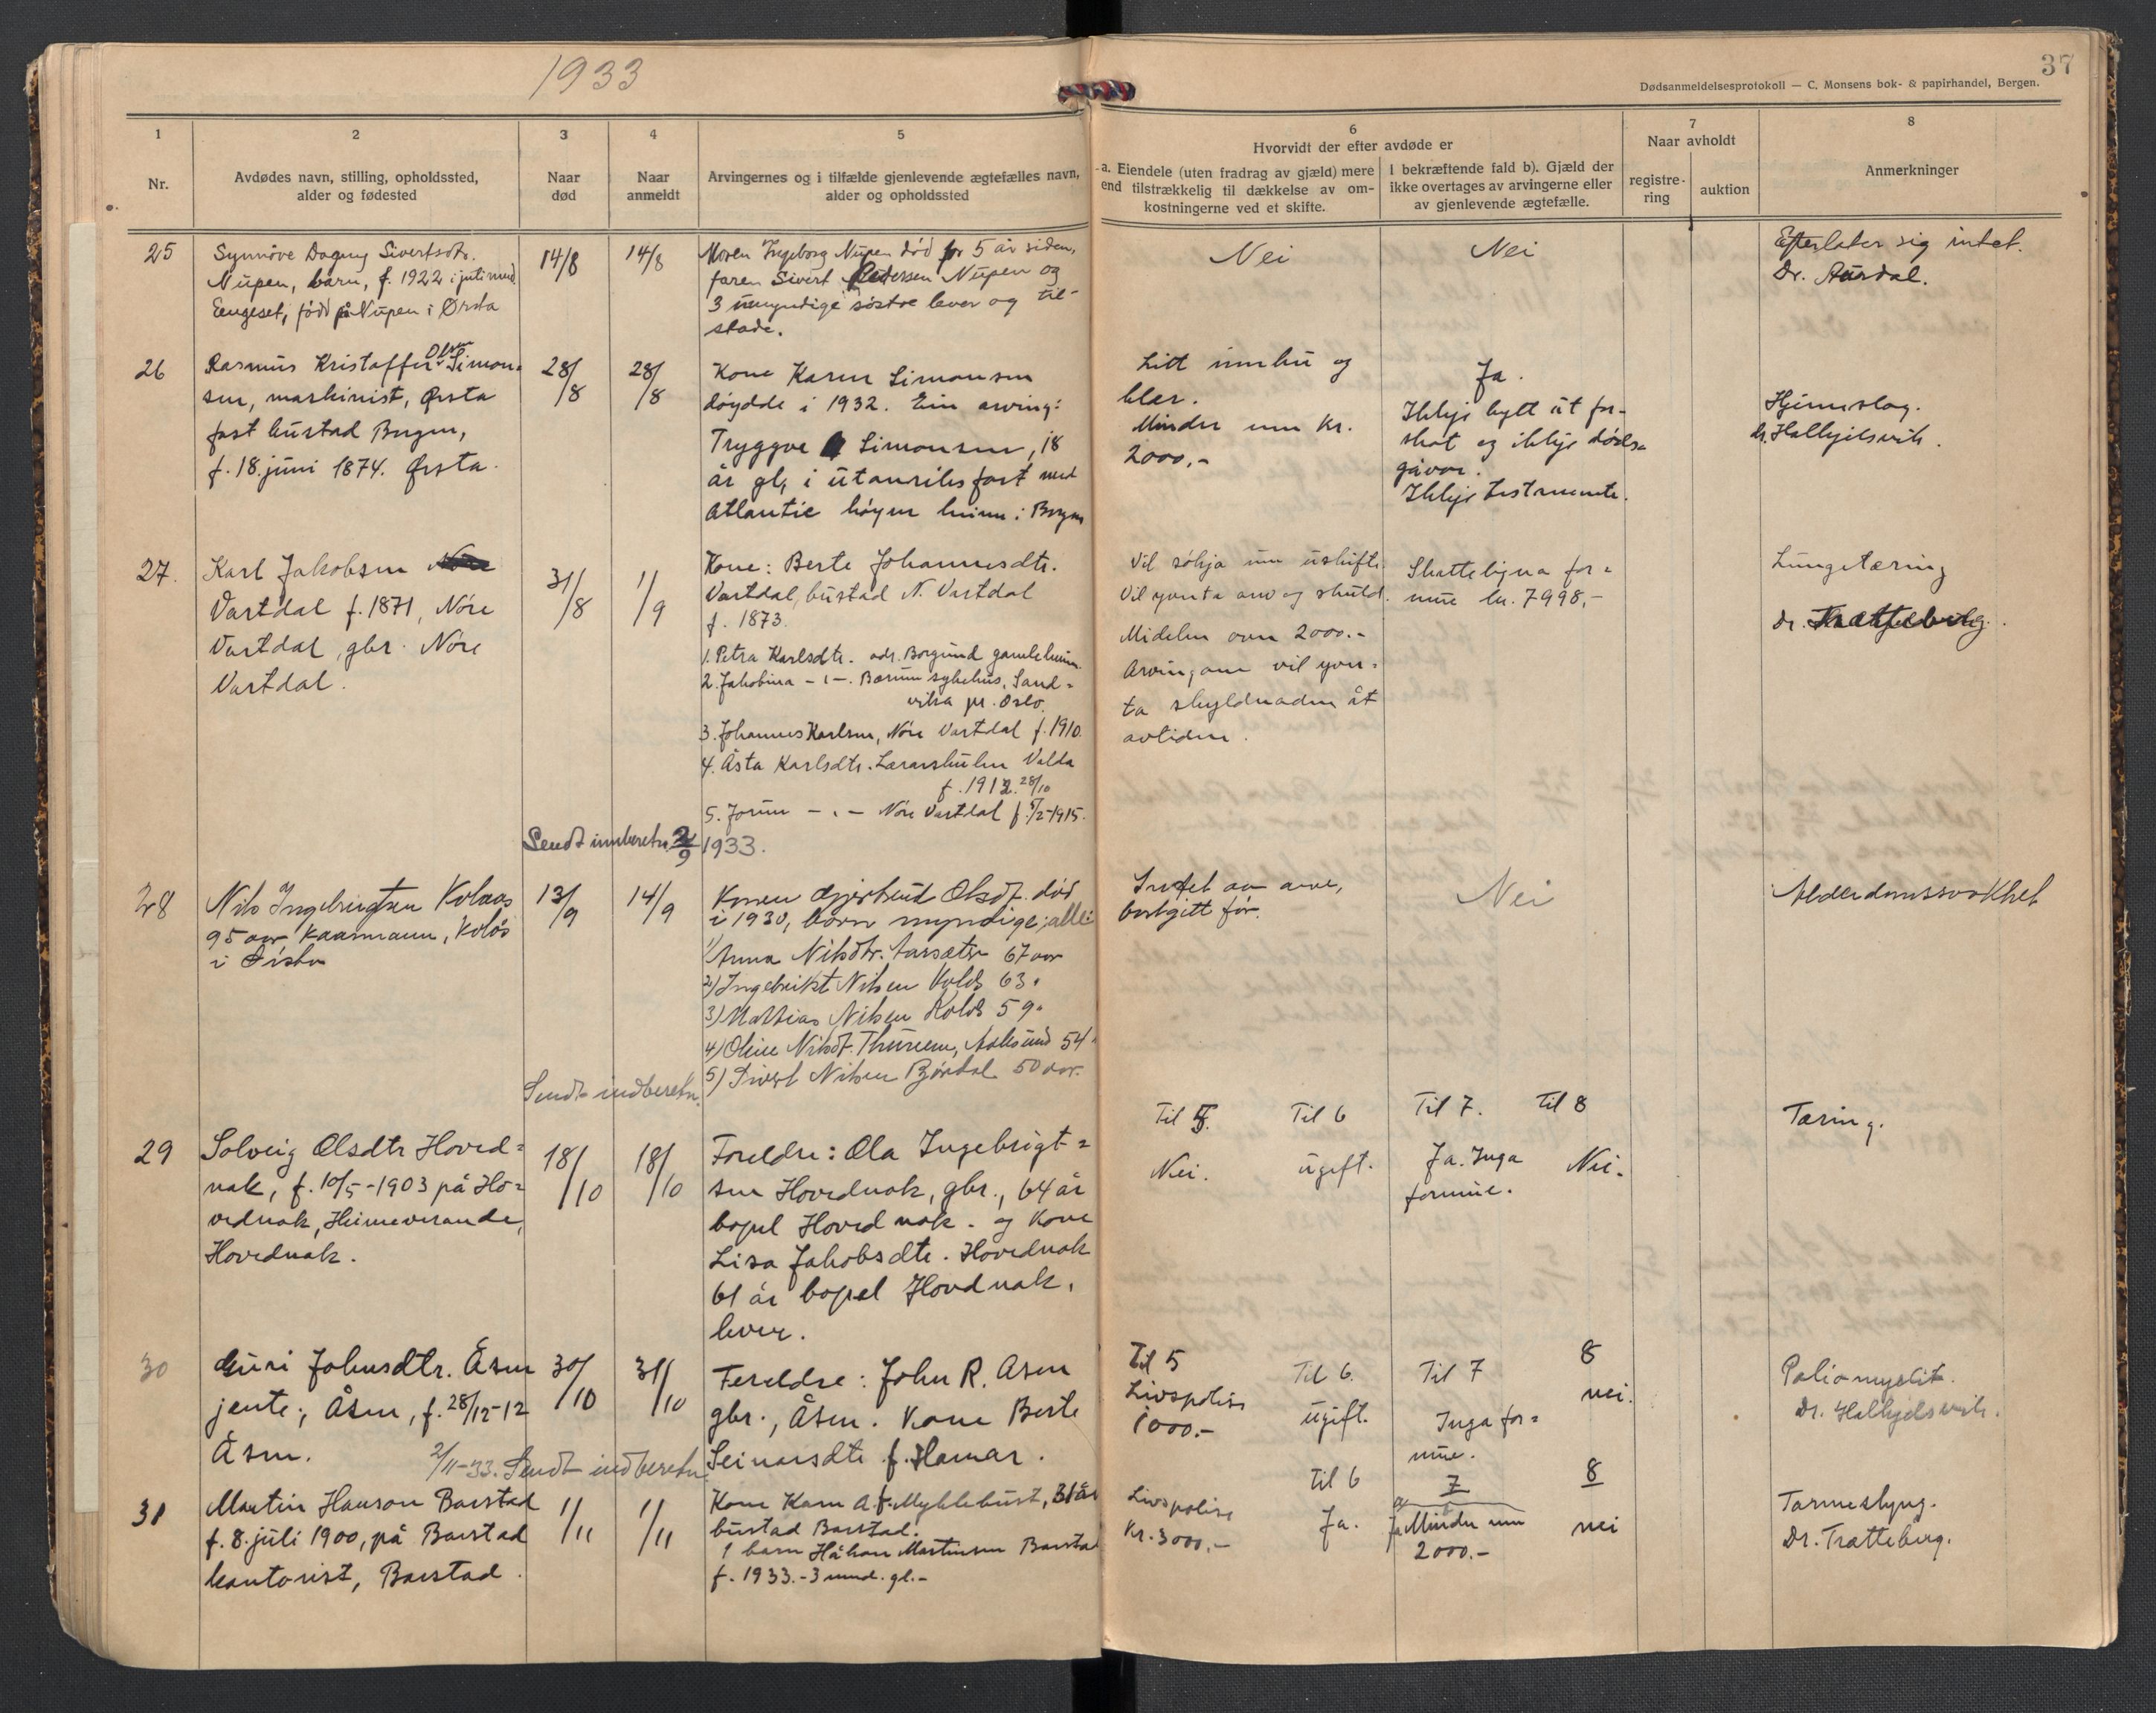 1933
37
Dødsanmeldelsesprotokoll — C. Monsens bok- & papirhandel, Bergen.
1
Nr.
2
Avdødes navn, stilling, opholdssted,
alder og fødested
3
Naar
død
4
Naar
anmeldt
5
Arvingernes og i tilfælde gjenlevende ægtefælles navn,
alder og opholdssted
6
Hvorvidt der efter avdøde er
a. Eiendele (uten fradrag av gjæld) mere
end tilstrækkelig til dækkelse av om-
kostningerne ved et skifte.
I bekræftende fald b). Gjæld der
ikke overtages av arvingerne eller
av gjenlevende ægtefælle.
7
Naar avholdt
registre-
ring
auktion
8
Anmerkninger
25
Synnöve Dagny Sivertsdtr.
Nupen, barn, f. 1922 i juti mnd
Eengeset, född på Nupen i Ørsta
14/8
14/8
Moren Ingeborg Nupen död for 5 år siden,
faren Sivert Pedersen Nupen og
3 umyndige söstre lever og til-
stade.
Nei
Nei
Efterlater sig intet.
Dr. Aursdal.
26
Rasmus Kristoffer Olsen Simon-
sen, maskinist, Ørsta
fast bustad Bergen,
f. 18 juni 1874. Ørsta.
28/8
28/8
Kone Karen Simonsen
döydde i 1932. Ein arving:
Tryggve Simonsen, 18
år gl, i utanriksfart med
Atlantic höyrer heime i Bergen
Litt innbu og
klær.
Minder enn kr.
2000,-
Ja.
Ikkje bytt ut for-
skot og ikkje döds-
gåvor.
Ikkje testamente.
Hjerneslag.
dr. Hallkjelsvik.
27.
Karl Jakobsen
Vartdal f. 1871, Nöre
Vartdal, gbr. Nöre
Vartdal.
31/8
1/9
Kone: Berte Johannesdtr.
Vartdal, bustad N. Vartdal
f. 1873.
1. Petra Karlsdtr. adr. Borgund gamleheim.
2. Jakobina - " -. Bærum sykehus, Sand-
vika pr. Oslo.
3. Johannes Karlsen, Nöre Vartdal f. 1910.
4. Åsta Karlsdtr. Lærarskulen Volda
f. 1912. 28/10
5. Jorun - " - Nöre Vartdal f. 5/2-1915.
Sendt innberetn. 2/9 1933.
Vil sökja um uskifte.
Vil yverta arv og skuld.
Midelen over 2000.-
Arvingane vil yver-
ta skyldnaden åt
avlidne.
Skatteligna for-
mue kr. 7998,-
Lungetæring
dr. Trætteberg.
28
Nils Ingebrigtsen Kolaas
95 aar, kaarmann, Kolås
i Örsta
13/9
14/9
Konen Gjertrud Olsdt. död
i 1930, born myndige, alle:
1) Anna Nilsdtr. Aarsæter 67 aar
2) Ingebrikt Nilsen Kolås 63 "
3) Mattias Nilsen Kolås 59 "
4) Oline Nilsdt. Thunem, Aalesund 54 "
5) Sivert Nilsen Bjørdal 50 aar.
Sendt indberetn.
Intet av arve,
bortgitt før.
Nei
Alderdomssvakhet
29
Solveig Olsdtr Hovd-
nak, f. 10/5-1903 på Ho-
vdnak, Heimeverande,
Hovdnak.
18/10
18/10
Foreldre: Ola Ingebrigt-
sen Hovdnak, gbr., 64 år
bopel Hovdnak. og kone
Lisa Jakobsdtr. Hovdnak
61 år bopel Hovdnak.
lever.
Til 5. Til 6 Til 7. Til 8
Nei. ugift. Ja. Inga Nei.
formue.
Tæring.
30
Guri Johnsdtr. Åsen
jente, Åsen, f. 28/12-12
Åsen.
30/10
31/10
Foreldre: John R. Åsen
gbr., Åsen. Kone Berte
Seinarsdtr f. Hamar.
2/11-33. Sendt indberetn.
Til 5 Til 6. Til 7 8
Livspolise ugift. Inga for- nei.
1000.- mue.
Poliomyelit.
Dr. Hallkjelsvik.
31
Martin Hanson Barstad
f. 8. juli 1900, på Barstad
kantorist, Barstad.
1/11
1/11
Kone Karn A. f. Myklebust, 31 år
bustad Barstad.
1 barn Håkon Martinsen Barstad
f. 1933.-3 mnd. gl.-
Til 6 7 8
Livspolise Ja. Ja Minder enn nei
Kr. 3000.- 2000.-
Tarmeslyng.
Dr. Trætteberg.